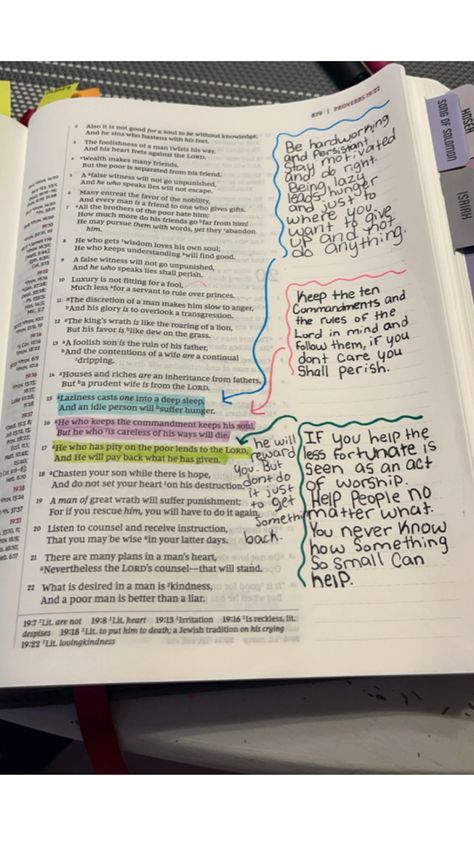 879 | PROVERBS 19:22
2 Also it is not good for a soul to be without knowledge,
And he sins who hastens with his feet.
3 The foolishness of a man twists his way,
And his heart frets against the LORD.
4 ᵃWealth makes many friends,
But the poor is separated from his friend.
5 A ᵃfalse witness will not go unpunished,
And he who speaks lies will not escape.
6 Many entreat the favor of the nobility,
And every man is a friend to one who gives gifts.
7 ᵃAll the brothers of the poor hate him;
How much more do his friends go ᵇfar from him!
He may pursue them with words, yet they ¹abandon
him.
8 He who gets ¹wisdom loves his own soul;
He who keeps understanding ᵃwill find good.
9 A false witness will not go unpunished,
And he who speaks lies shall perish.
10 Luxury is not fitting for a fool,
Much less ᵃfor a servant to rule over princes.
11 ᵃThe discretion of a man makes him slow to anger,
ᵇAnd his glory is to overlook a transgression.
12 ᵃThe king's wrath is like the roaring of a lion,
But his favor is ᵇlike dew on the grass.
13 ᵃA foolish son is the ruin of his father,
ᵇAnd the contentions of a wife are a continual
¹dripping.
14 ᵃHouses and riches are an inheritance from fathers,
But ᵇa prudent wife is from the LORD.
15 ᵃLaziness casts one into a deep sleep,
And an idle person will ᵇsuffer hunger.
16 ᵃHe who keeps the commandment keeps his soul,
But he who ¹is careless of his ways will die.
17 ᵃHe who has pity on the poor lends to the LORD,
And He will pay back what he has given.
18 ᵃChasten your son while there is hope,
And do not set your heart ¹on his destruction.
19 A man of great wrath will suffer punishment;
For if you rescue him, you will have to do it again.
20 Listen to counsel and receive instruction,
That you may be wise ᵃin your latter days.
21 There are many plans in a man's heart,
ᵃNevertheless the LORD's counsel—that will stand.
22 What is desired in a man is ¹kindness,
And a poor man is better than a liar.
19:7 ¹Lit. are not 19:8 ¹Lit. heart 19:13 ¹Irritation 19:16 ¹Is reckless, lit.
despises 19:18 ¹Lit. to put him to death; a Jewish tradition on his crying
19:22 ¹Lit. lovingkindness
Be hardworking
and Persistant
Stay motivated
and do right.
Being lazy
leads hunger
and just to
where you
want to give
up and not
do anything.
Keep the ten
Commandments and
the rules of the
Lord in mind and
Follow them, if you
dont care you
Shall perish.
he will
reward
you. But
dont do
it just
to get
Something
back.
If you help the
less fortunate is
seen as an act
of worship.
Help People no
matter what.
You never know
how something
So small can
help.
SONG OF SOLOMON
ISAIAH
HOSEA